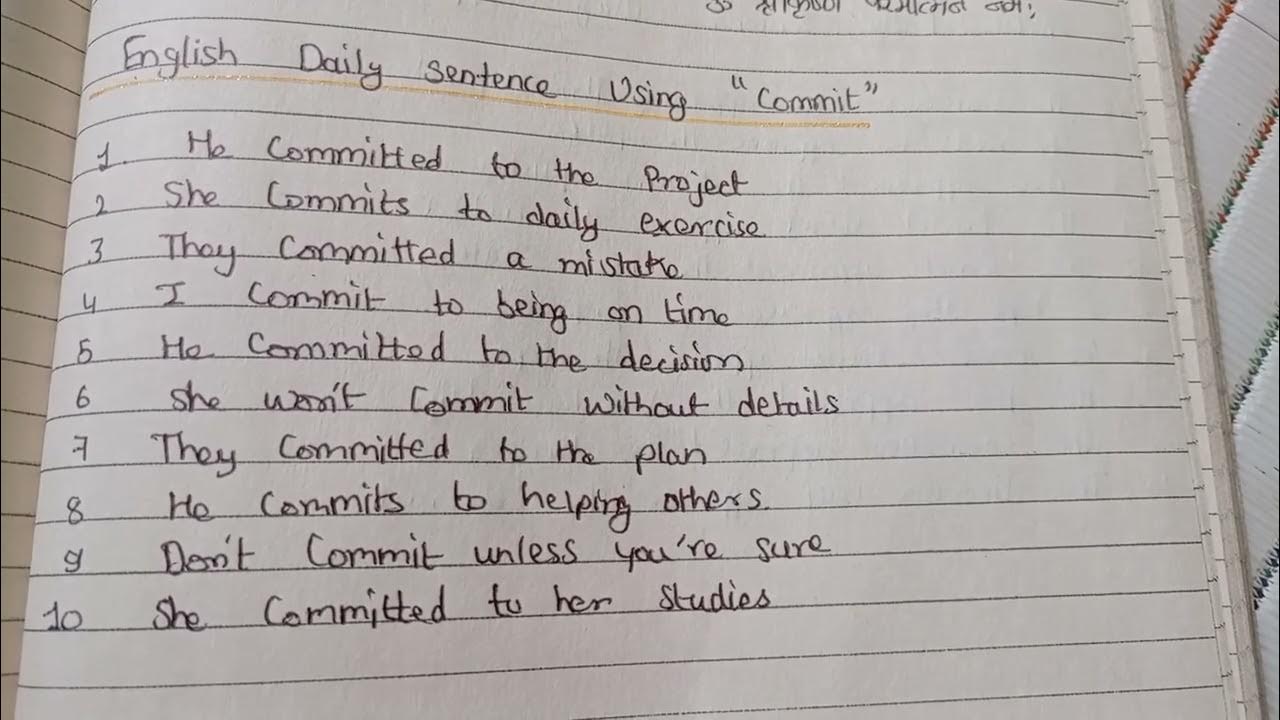 ॐ श्रीकृष्ण परमात्मने नमः
English Daily Sentence Using "Commit"
1. He Committed to the Project
2 She Commits to daily exercise
3 They Committed a mistake
4 I Commit to being on time
5 He Committed to the decision
6 She won't Commit without details
7 They Committed to the plan
8 He Commits to helping others.
9 Don't Commit unless you're sure
10 She Committed to her Studies